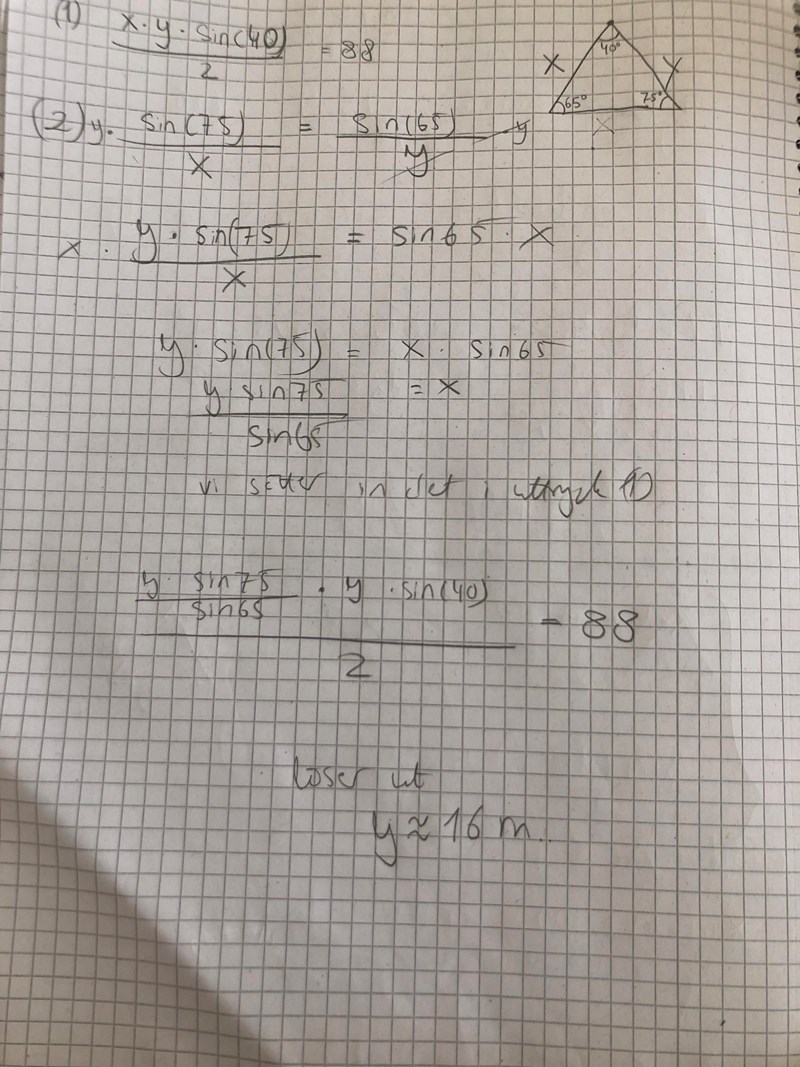 (1) x·y·sin(40) / 2 = 88
40°
x y
65° 75°
x
(2) y· sin(75) / x = sin(65) / y · y
x · y·sin(75) / x = sin65·x
y·sin(75) = x · sin65
y sin75 / sin65 = x
vi sätter in det i uttryck (1)
y· sin75 / sin65 · y · sin(40) / 2 = 88
löser ut
y ≈ 16 m